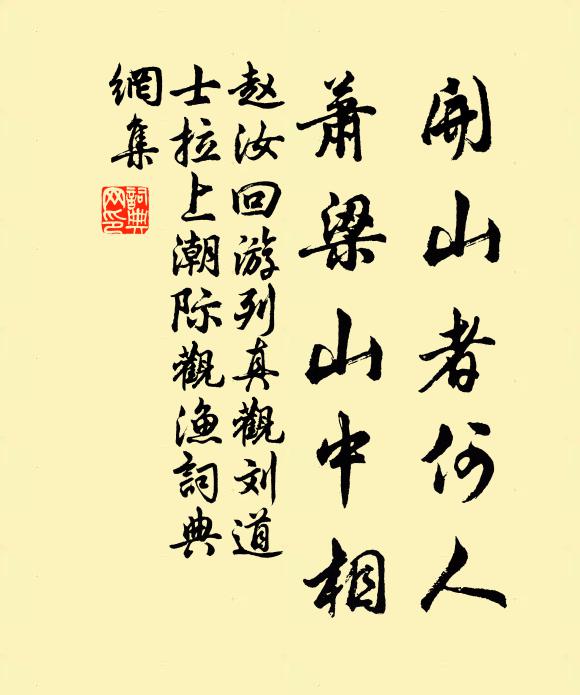 開山者何人
萧梁山中相
赵汝回游列真觀刘道
士拉上潮际觀渔詞典
網集
詞典网印